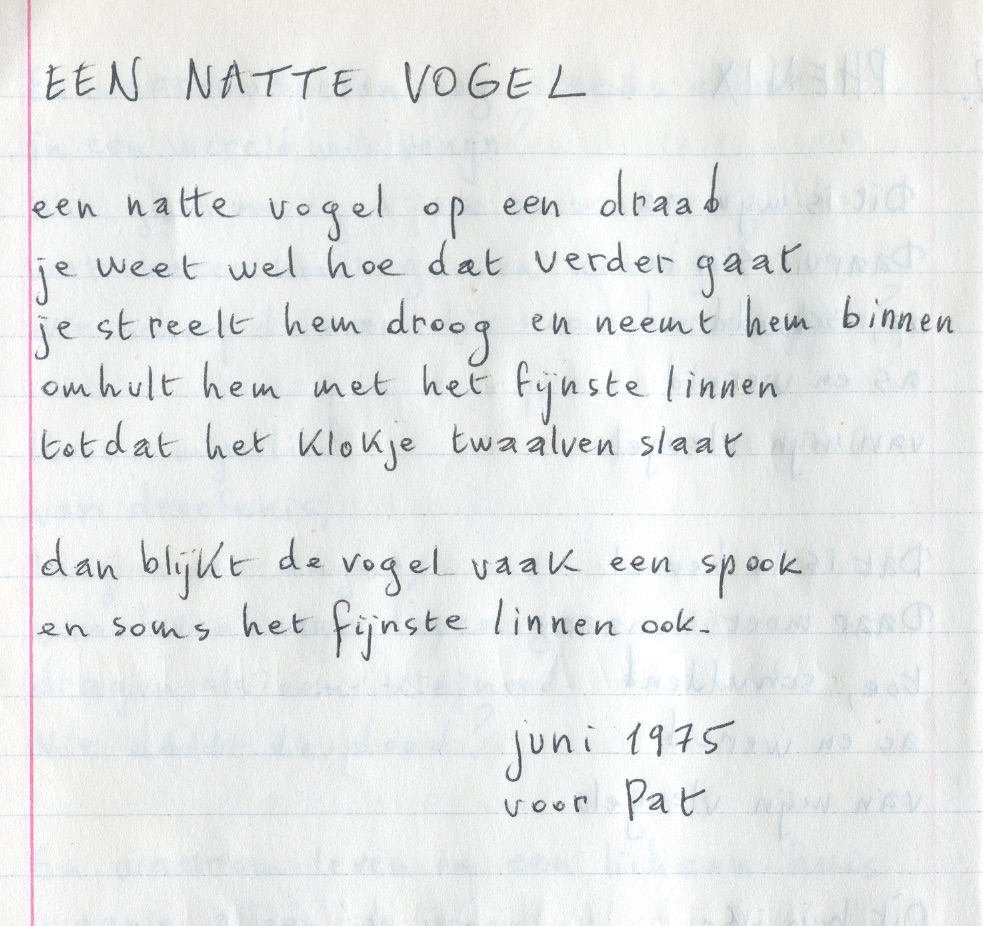 EEN NATTE VOGEL
een natte vogel op een draad
je weet wel hoe dat verder gaat
je streelt hem droog en neemt hem binnen
omhult hem met het fijnste linnen
totdat het klokje twaalven slaat
dan blijkt de vogel vaak een spook
en soms het fijnste linnen ook.
juni 1975
voor Pat